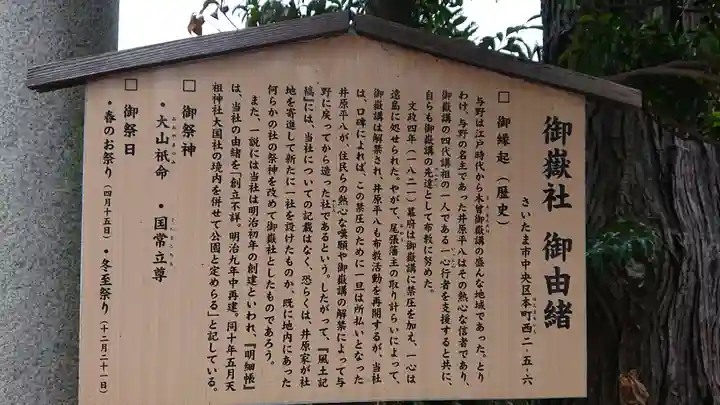 御嶽社 御由緒
さいたま市中央区本町西二-五-六
□ 御縁起(歴史)
与野は江戸時代から木曽御嶽講の盛んな地域であった。とり
わけ、与野の名主であった井原平八はその熱心な信者であり、
御嶽講の四代講祖の一人である一心行者を支援すると共に、
自らも御嶽講の先達として布教に努めた。
文政四年(一八二一)幕府は御嶽講に禁圧を加え、一心は
遠島に処せられた。やがて、尾張藩主の取り計らいによって、
御嶽講は解禁され、井原平八も布教活動を再開するが、当社
は、口碑によれば、この禁圧のために一旦は所払いとなった
井原平八が、住民らの熱心な嘆願や御嶽講の解禁によって与
野に戻ってから造った社であるという。したがって、『風土記
稿』には、当社についての記載はなく、恐らくは、井原家が社
地を寄進して新たに一社を設けたものか、既に地内にあった
何らかの社の祭神を改めて御嶽社としたものであろう。
また、一説には当社は明治初年の創建といわれ、『明細帳』
は、当社の由緒を「創立不詳。明治九年中再建。同十年五月天
祖神社大国社の境内を併せて公園と定めらる」と記している。
□ 御祭神
・大山祇命 ・国常立尊
□ 御祭日
・春のお祭り(四月十五日)・冬至祭り(十二月二十一日)